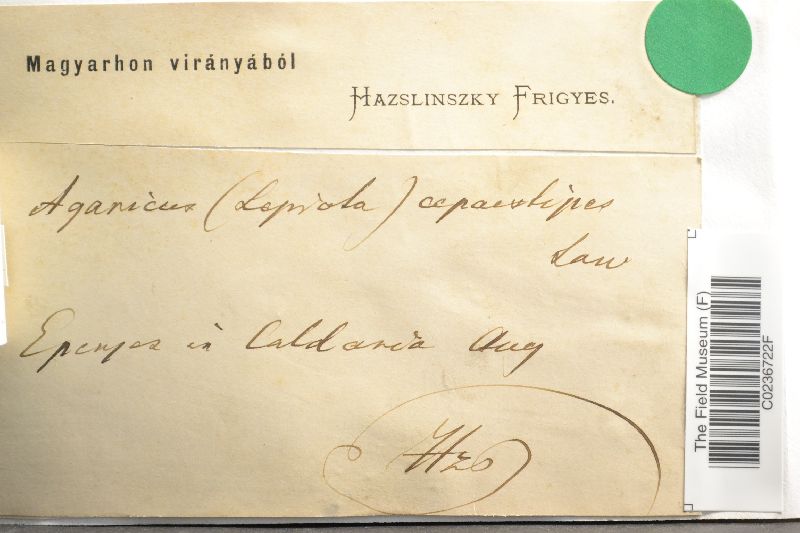 Magyarhon virányából
HAZSLINSZKY FRIGYES.
Agaricus (Lepiota) cepaestipes
Sow
Eperjes in Caldaria Aug
Hzs
The Field Museum (F)
C0236722F